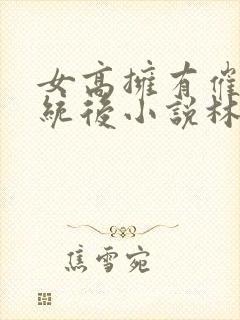 女高擁有催
統後小說林
焦雪宛